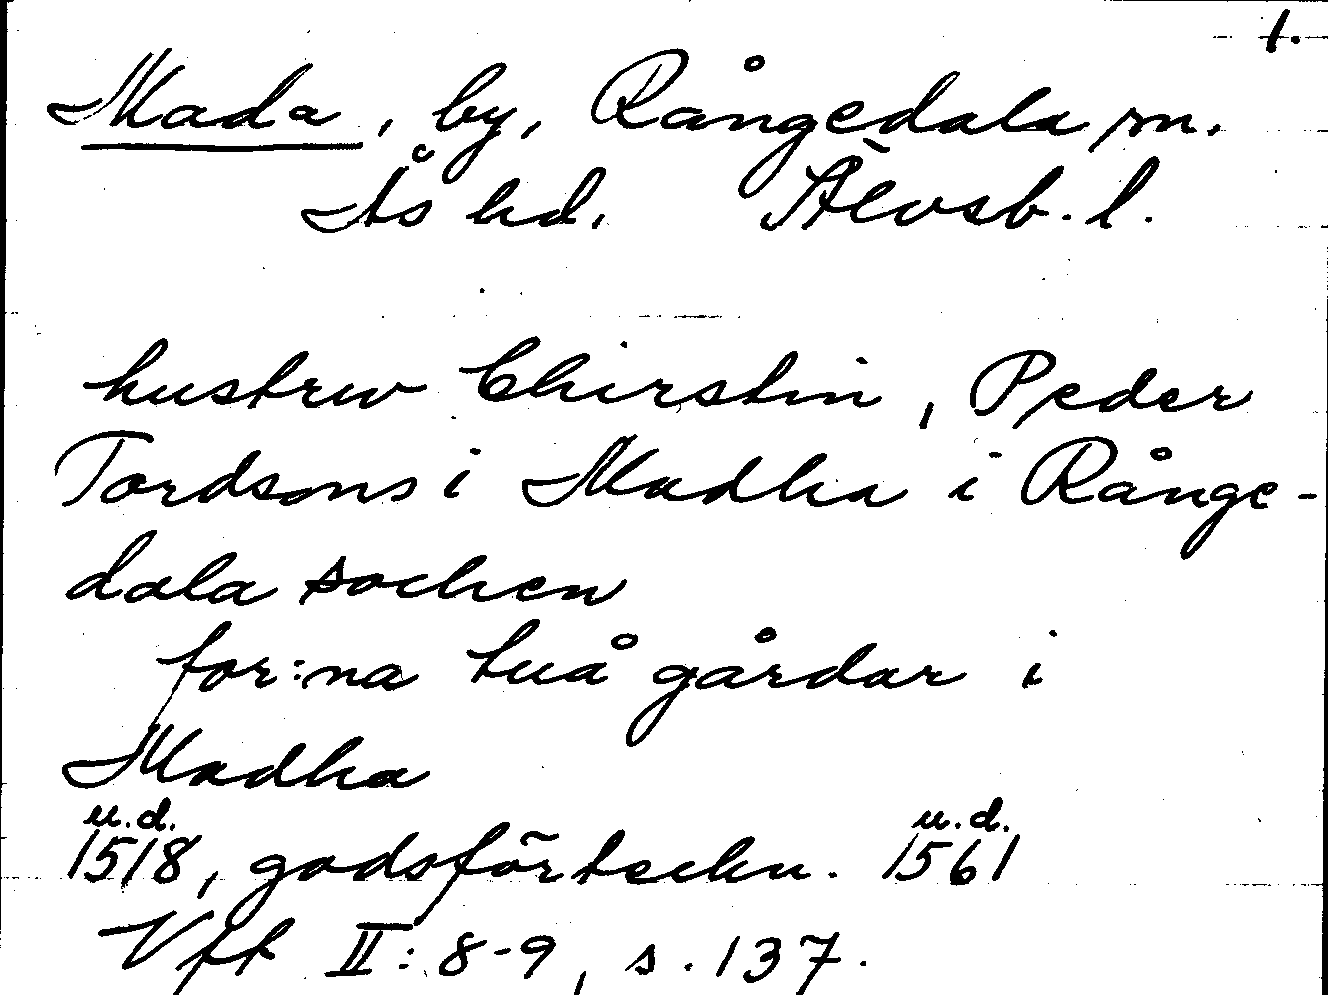 1.
Mada, by, Rångedala sn.
Ås hd. Älvsb. l.
hustrw Chirstin, Peder
Tordsons i Madha i Rånge-
dala sochen
for:na tuå gårdar i
Madha
u.d. u.d.
1518, godsförteckn. 1561
Vft II: 8-9, s. 137.